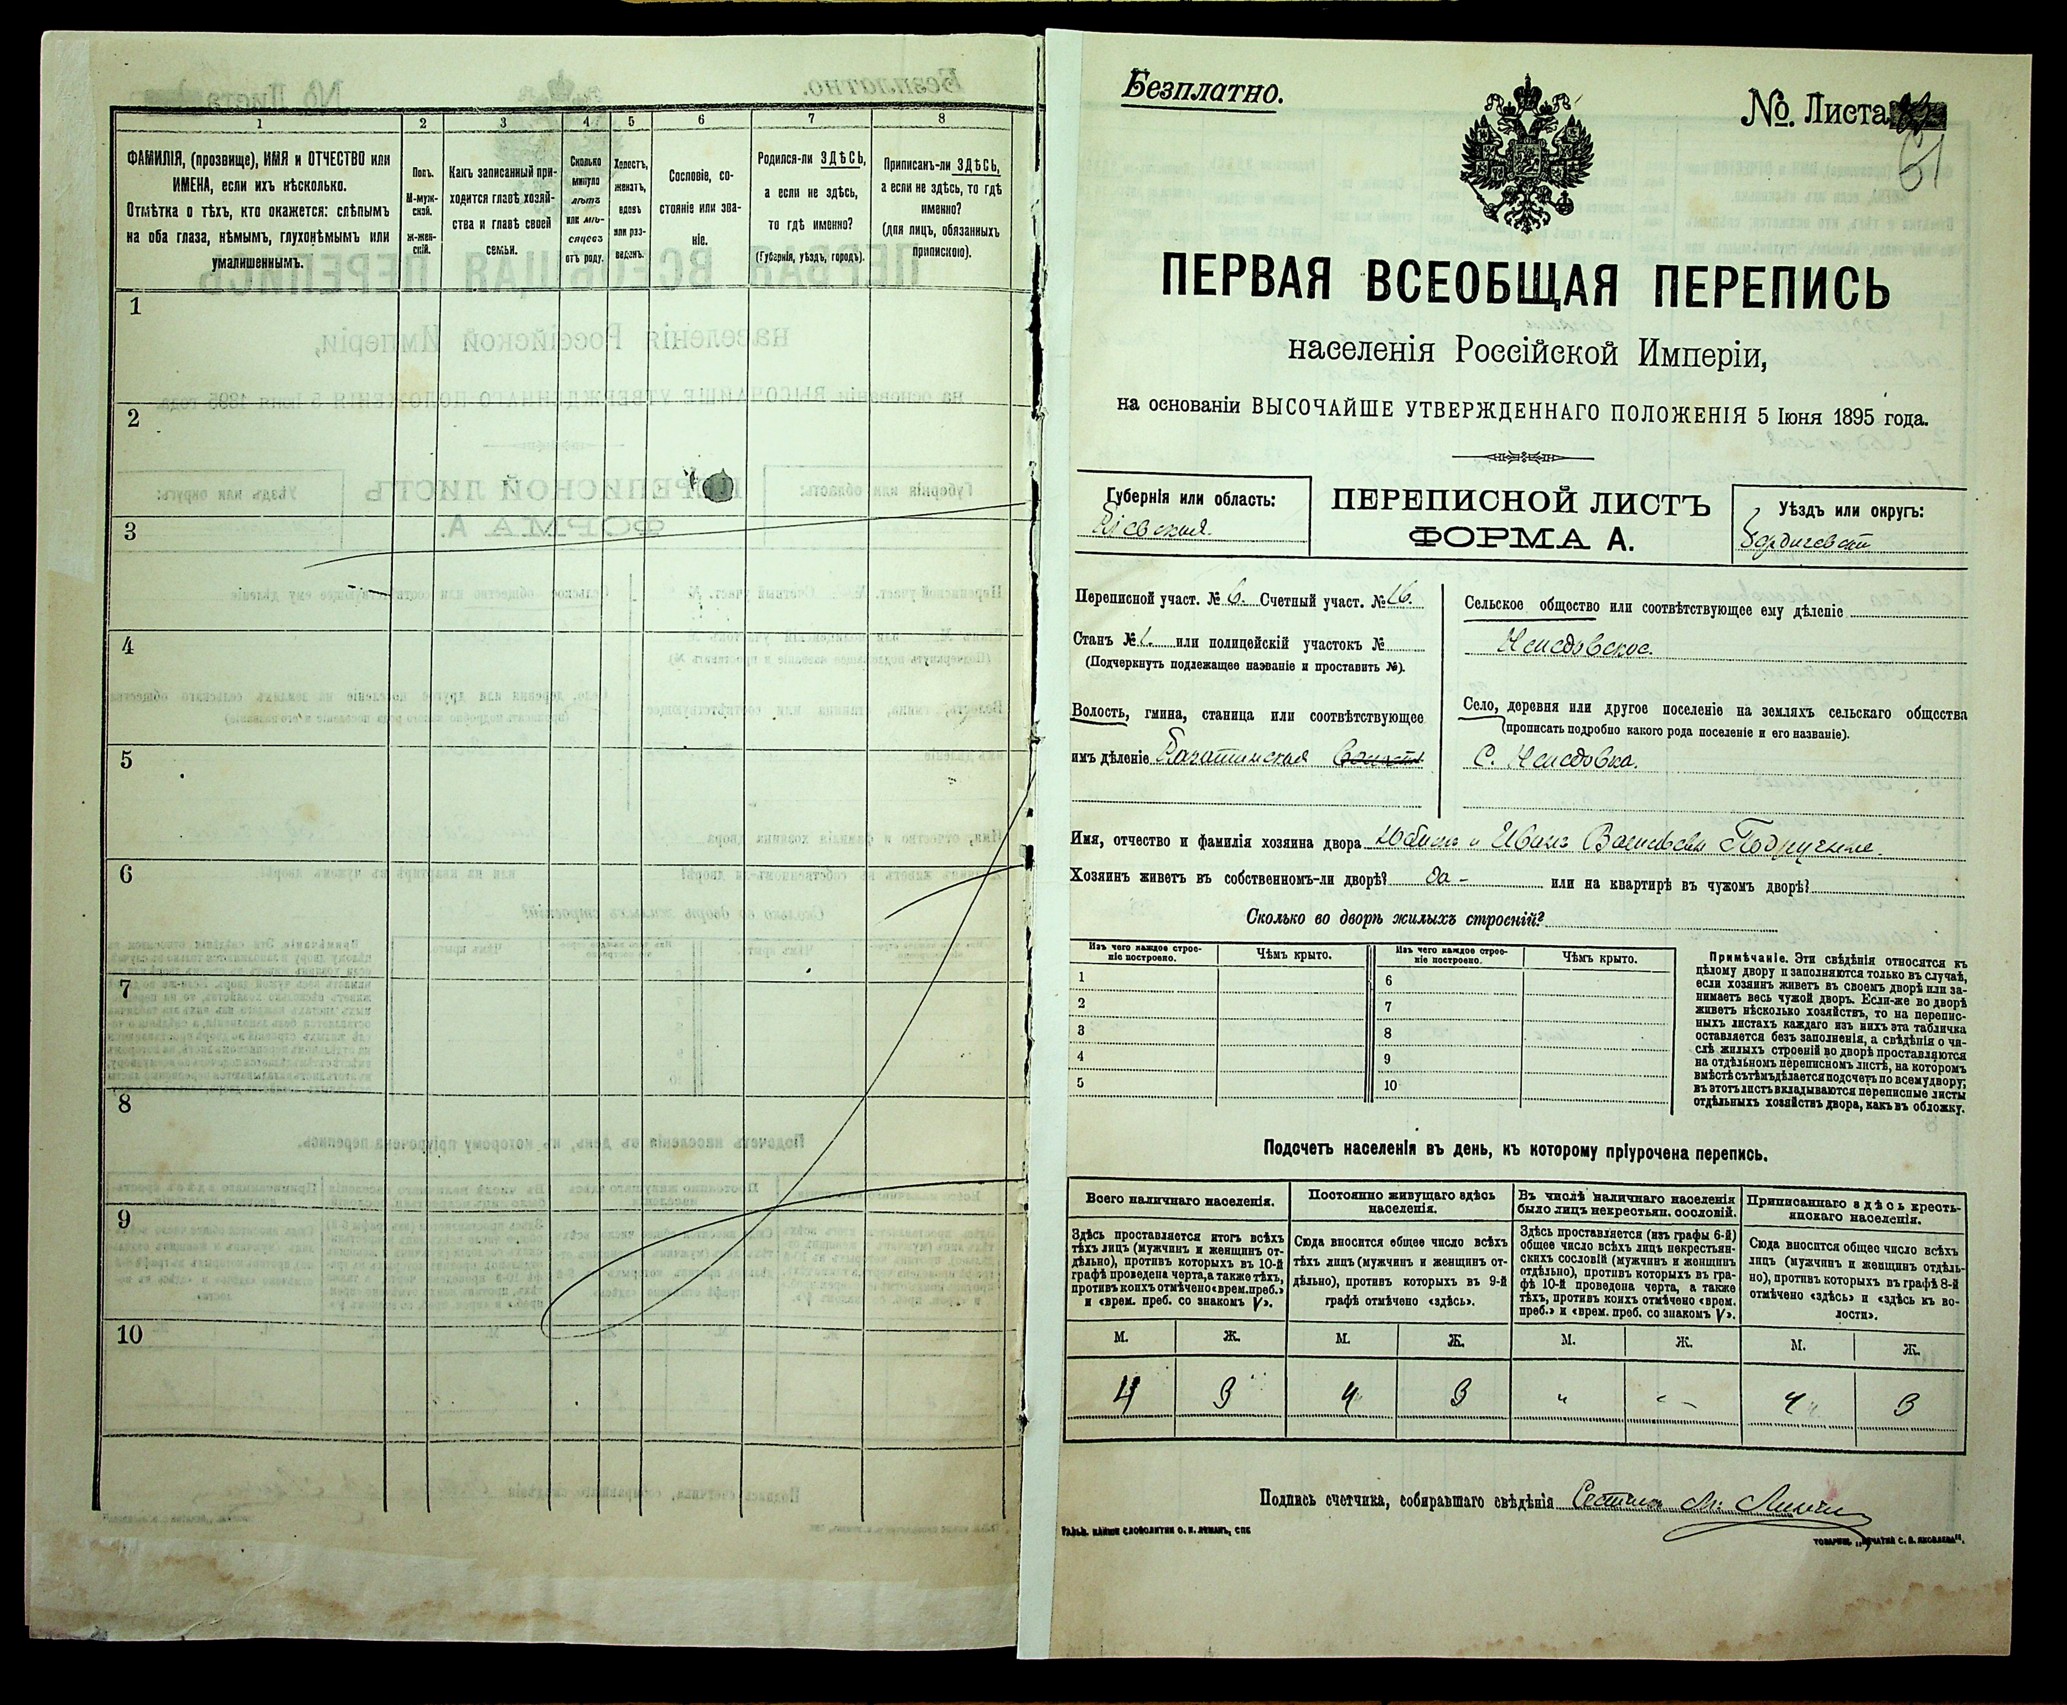 1 2 3 4 5 6 7 8
ФАМИЛІЯ, (прозвище), ИМЯ и ОТЧЕСТВО или
ИМЕНА, если ихъ нѣсколько.
Отмѣтка о тѣхъ, кто окажется: слѣпымъ
на оба глаза, нѣмымъ, глухонѣмымъ или
умалишеннымъ.
Полъ.
М-муж-
ской.
Ж-жен-
скій.
Какъ записанный при-
ходится главѣ хозяй-
ства и главѣ своей
семьи.
Сколько
минуло
лѣтъ
или мѣ-
сяцевъ
отъ роду.
Холостъ,
женатъ,
вдовъ
или раз-
веденъ.
Сословіе, со-
стояніе или зва-
ніе.
Родился-ли ЗДѢСЬ,
а если не здѣсь,
то гдѣ именно?
(Губернія, уѣздъ, городъ).
Приписанъ-ли ЗДѢСЬ,
а если не здѣсь, то гдѣ
именно?
(для лицъ, обязанныхъ
припискою).
1
2
3
4
5
6
7
8
9
10
Безплатно.
№. Листа
ПЕРВАЯ ВСЕОБЩАЯ ПЕРЕПИСЬ
населенія Россійской Имперіи,
на основаніи ВЫСОЧАЙШЕ УТВЕРЖДЕННАГО ПОЛОЖЕНІЯ 5 Іюня 1895 года.
Губернія или область:
Кіевская.
ПЕРЕПИСНОЙ ЛИСТЪ
ФОРМА А.
Уѣздъ или округъ:
Бердичевскій
Переписной участ. № 6. Счетный участ. № 16.
Станъ № 1. или полицейскій участокъ №
(Подчеркнуть подлежащее названіе и проставить №).
Волость, гмина, станица или соотвѣтствующее
имъ дѣленіе
Сельское общество или соотвѣтствующее ему дѣленіе
Село, деревня или другое поселеніе на земляхъ сельскаго общества
(прописать подробно какого рода поселеніе и его названіе).
С.
Имя, отчество и фамилія хозяина двора и Иванъ
Хозяинъ живетъ въ собственномъ-ли дворѣ? да - или на квартирѣ въ чужомъ дворѣ?
Сколько во дворѣ жилыхъ строеній?
Изъ чего каждое строе-
ніе построено.
Чѣмъ крыто.
Изъ чего каждое строе-
ніе построено.
Чѣмъ крыто.
1 6
2 7
3 8
4 9
5 10
Примѣчаніе. Эти свѣдѣнія относятся къ
цѣлому двору и заполняются только въ случаѣ,
если хозяинъ живетъ въ своемъ дворѣ или за-
нимаетъ весь чужой дворъ. Если-же во дворѣ
живетъ нѣсколько хозяйствъ, то на перепис-
ныхъ листахъ каждаго изъ нихъ эта табличка
оставляется безъ заполненія, а свѣдѣнія о чи-
слѣ жилыхъ строеній во дворѣ проставляются
на отдѣльномъ переписномъ листѣ, на которомъ
вмѣстѣ съ тѣмъ дѣлается подсчетъ по всему двору;
въ этотъ листъ вкладываются переписные листы
отдѣльныхъ хозяйствъ двора, какъ въ обложку.
Подсчетъ населенія въ день, къ которому пріурочена перепись.
Всего наличнаго населенія.
Постоянно живущаго здѣсь
населенія.
Въ числѣ наличнаго населенія
было лицъ некрестьян. сословій.
Приписаннаго здѣсь кресть-
янскаго населенія.
Здѣсь проставляется итогъ всѣхъ
тѣхъ лицъ (мужчинъ и женщинъ от-
дѣльно), противъ которыхъ въ 10-й
графѣ проведена черта, а также тѣхъ,
противъ коихъ отмѣчено «врем. преб.»
и «врем. преб. со знакомъ V».
Сюда вносится общее число всѣхъ
тѣхъ лицъ (мужчинъ и женщинъ от-
дѣльно), противъ которыхъ въ 9-й
графѣ отмѣчено «здѣсь».
Здѣсь проставляется (изъ графы 6-й)
общее число всѣхъ лицъ некрестьян-
скихъ сословій (мужчинъ и женщинъ
отдѣльно), противъ которыхъ въ гра-
фѣ 10-й проведена черта, а также
тѣхъ, противъ коихъ отмѣчено «врем.
преб.» и «врем. преб. со знакомъ V».
Сюда вносится общее число всѣхъ
лицъ (мужчинъ и женщинъ отдѣль-
но), противъ которыхъ въ графѣ 8-й
отмѣчено «здѣсь» и «здѣсь къ во-
лости».
М. Ж. М. Ж. М. Ж. М. Ж.
4 3 4 3 " " 4 3
Подпись счетчика, собиравшаго свѣдѣнія